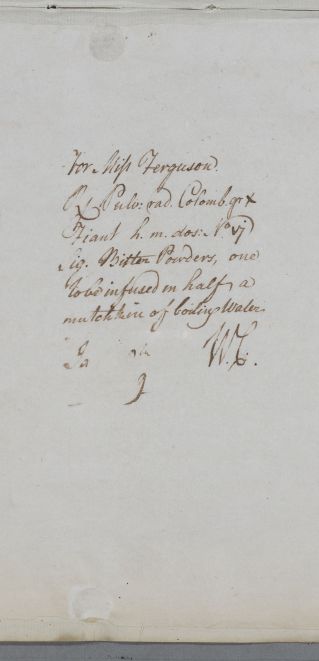 For Miss Ferguson.
℞ Pulv: rad. Colomb. gr x
Fiant h. m. dos: No vj
Sig. Bitter Powders, one
to be infused in half a
mutchkin of boiling Water
W.C.